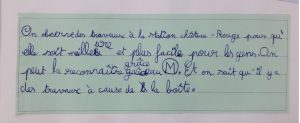 On observe des travaux à la station château-Rouge pour qu'
elle soit meilleure et plus facile pour les gens. On
peut la reconnaître grâce au M. Et on sait qu'il y a
des travaux à cause de la boîte.